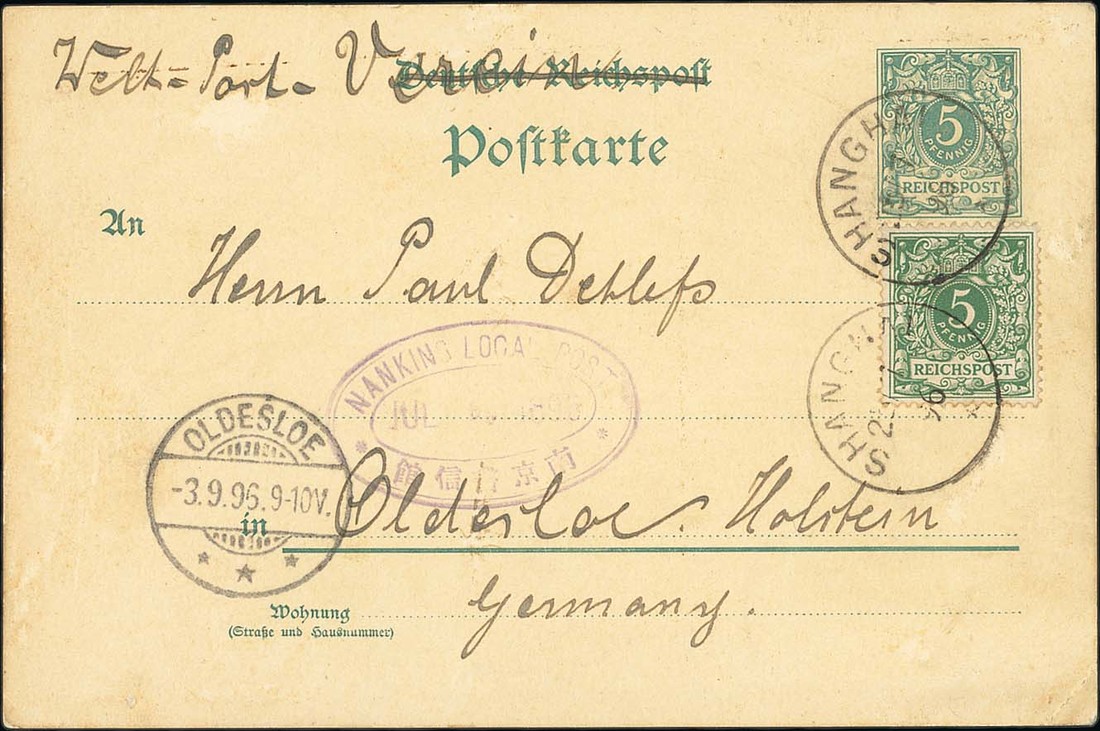 Welt-Post-Verein
Deutsche Reichspost
Postkarte
5
PFENNIG
REICHSPOST
SHANGHAI
An
Herrn Paul Detlefs
5
PFENNIG
REICHSPOST
SHANGHAI
22
7
96
NANKING LOCAL POST
JUL 1896
南京 信館
OLDESLOE
-3.9.96.9-10V.
in
Oldesloe. Holstein
Germany.
Wohnung
(Straße und Hausnummer)